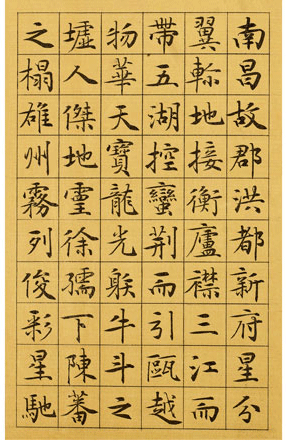 南昌故郡洪都新府星分
翼軫地接衡廬襟三江而
帶五湖控蠻荆而引甌越
物華天寶龍光躲牛斗之
墟人傑地霊徐孺下陳蕃
之榻雄州霧列俊彩星馳